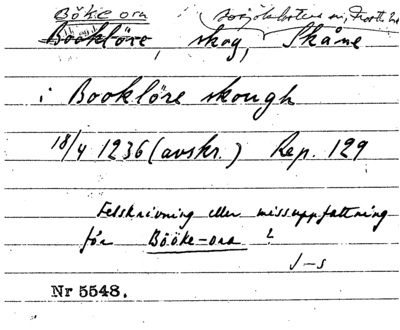 Böke ora
Booklöre, skog, Skåne
i Booklöre skough
18/4 1236 (avskr.) Rep. 129
Felskrivning eller missuppfattning
för Bööke-ora ?
J-s
Nr 5548.